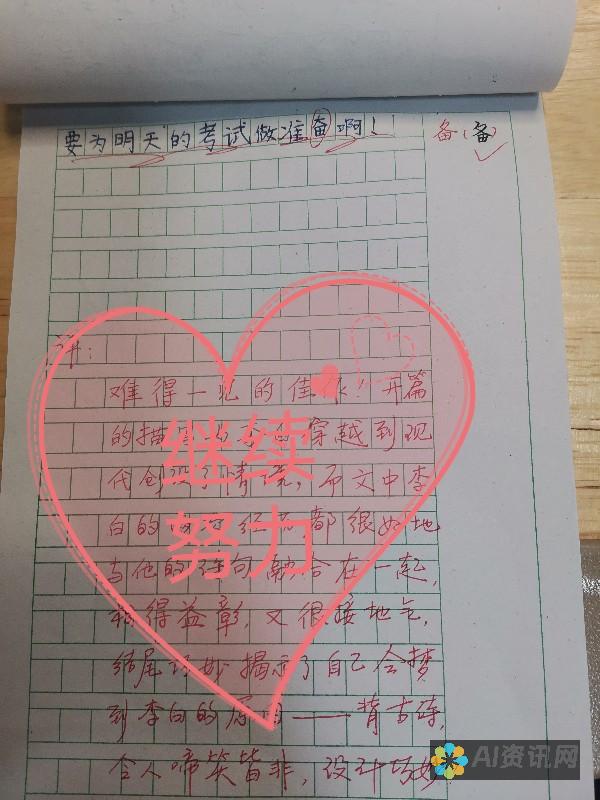 要为明天的考试做准奋啊!
备(备)
评:
难得一见的佳作!开篇
的描 穿越到现
代创设了情境,而文中李
白的 经历,都很好地
与他的诗句融合在一起,
相得益彰,又很接地气,
结尾巧妙揭示了自己会梦
到李白的原因——背古诗,
令人啼笑皆非,设计巧妙
继续
努力
AI资讯网